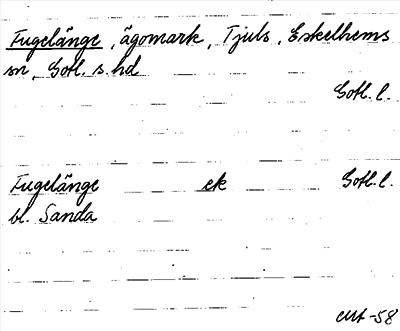 Fugelänge, ägomark, Tjuls, Eskelhems
sn, Gotl. s. hd
Gotl. l.
Fugelänge ek Gotl. l.
bl. Sanda
-58